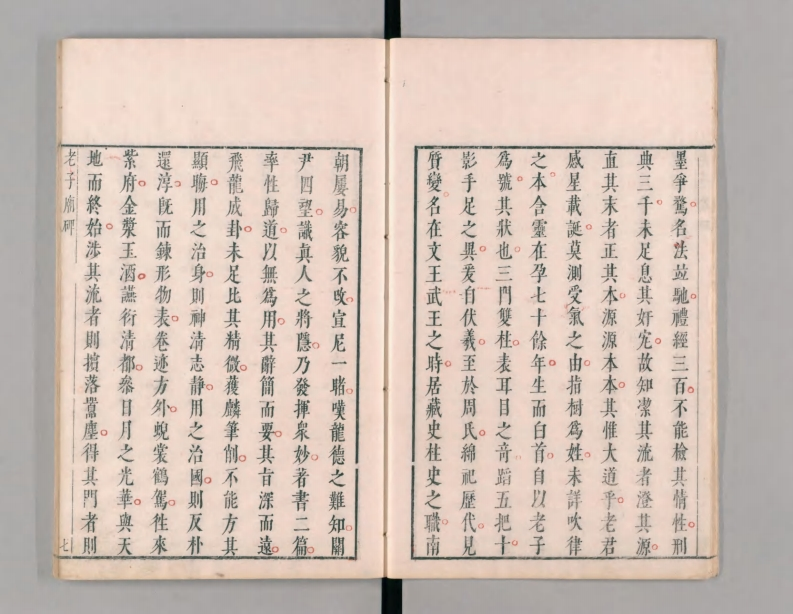 墨爭騖名法竝馳禮經三百不能檢其情性刑
典三千未足息其奸宄故知潔其流者澄其源
直其末者正其本源源本本其惟大道乎老君
感星載誕莫測受氣之由指樹爲姓未詳吹律
之本含靈在孕七十餘年生而白首自以老子
爲號其狀也三門雙柱表耳目之竒蹈五把十
影手足之異爰自伏羲至於周氏綿祀歷代見
質變名在文王武王之時居藏史柱史之職南
朝屢易容貌不攺宣尼一睹嘆龍德之難知關
尹四望識真人之將隱乃發揮衆妙著書二篇
率性歸道以無爲用其辭簡而要其旨深而遠
飛龍成卦未足比其精微獲麟筆削不能方其
顯晦用之治身則神清志靜用之治國則反朴
還淳旣而鍊形物表卷迹方外蜺裳鶴駕徃來
紫府金漿玉酒讌衎清都叅日月之光華與天
地而終始涉其流者則擯落囂塵得其門者則
老子廟碑
七